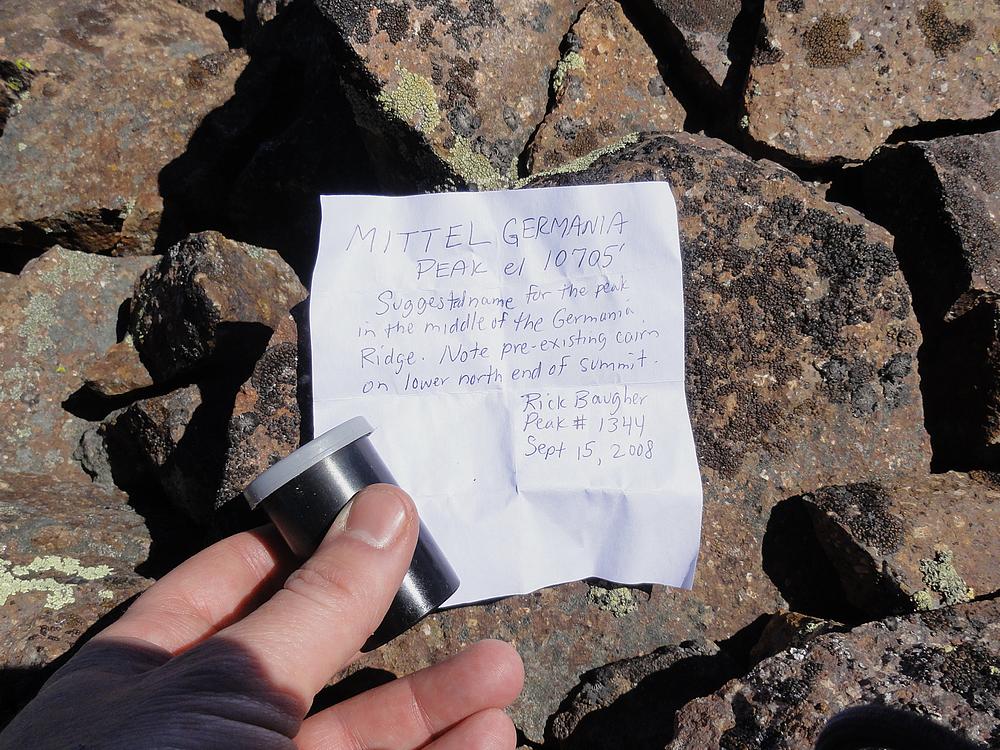 MITTEL GERMANIA
PEAK el 10705'
Suggested name for the peak
in the middle of the Germania
Ridge. Note pre-existing cairn
on lower north end of summit.
Rick Baugher
Peak # 1344
Sept 15, 2008